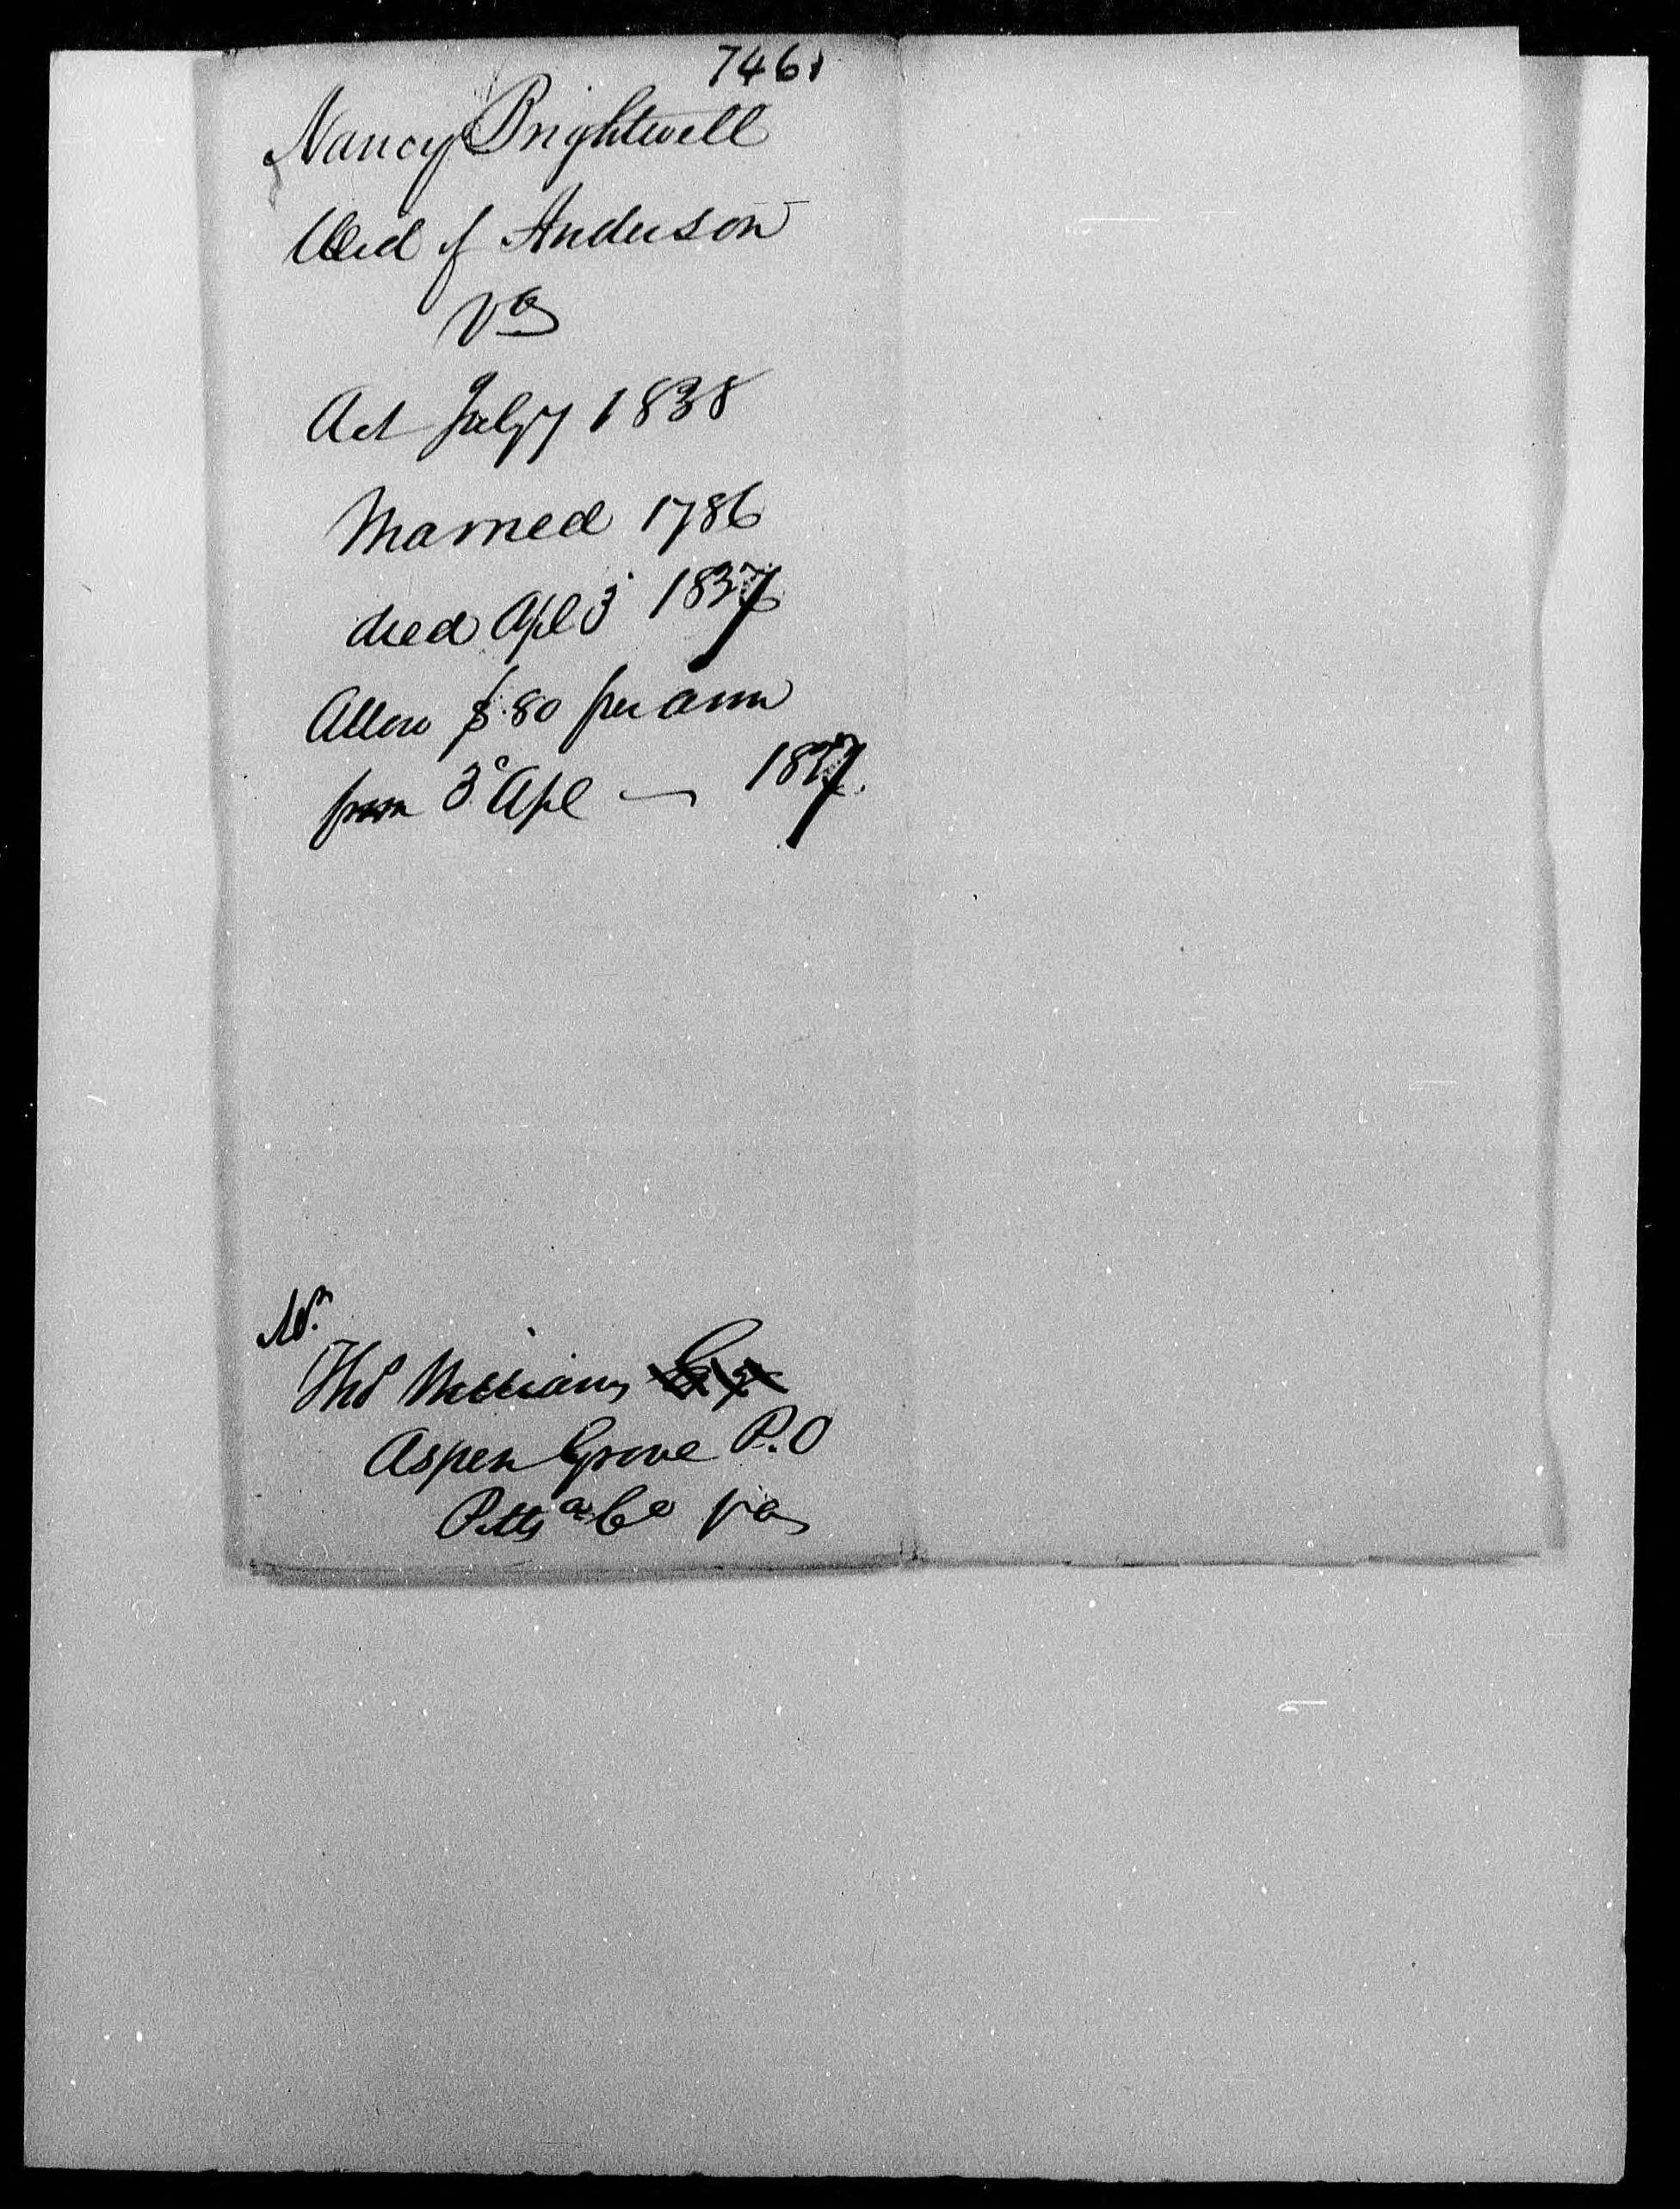 7461
Nancy Brightwell
Wid of Anderson
Va
Act July 7 1838
Married 1786
died Apl 3 1837
Allow $80 per ann
from 3d Apl — 1837.
Thos Williams
Aspen Grove P.O
Pittsa Co Va